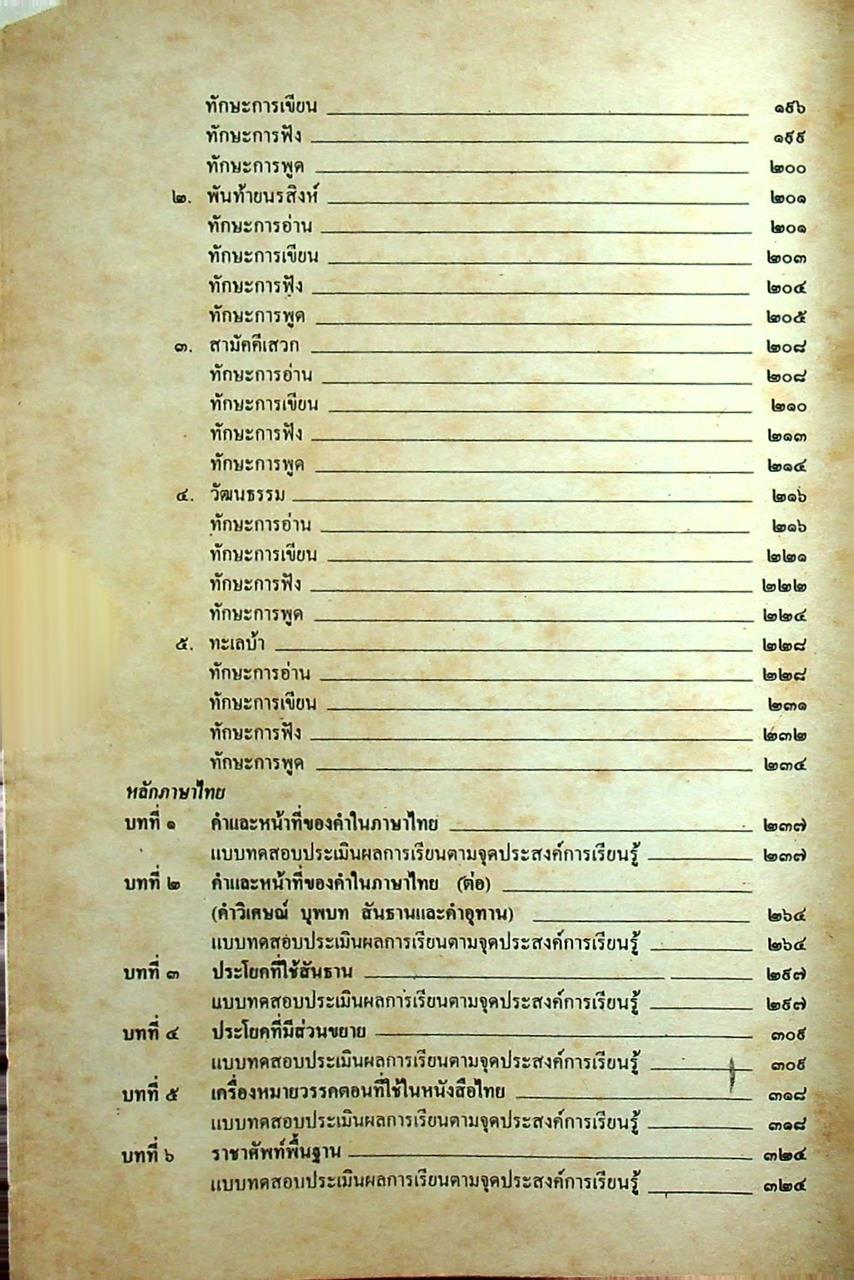 ทักษะการเขียน ๑๙๖
ทักษะการฟัง ๑๙๙
ทักษะการพูด ๒๐๐
๒. พันท้ายนรสิงห์ ๒๐๑
ทักษะการอ่าน ๒๐๑
ทักษะการเขียน ๒๐๓
ทักษะการฟัง ๒๐๔
ทักษะการพูด ๒๐๕
๓. สามัคคีเสวก ๒๐๘
ทักษะการอ่าน ๒๐๘
ทักษะการเขียน ๒๑๐
ทักษะการฟัง ๒๑๓
ทักษะการพูด ๒๑๔
๔. วัฒนธรรม ๒๑๖
ทักษะการอ่าน ๒๑๖
ทักษะการเขียน ๒๒๑
ทักษะการฟัง ๒๒๒
ทักษะการพูด ๒๒๔
๕. ทะเลบ้า ๒๒๘
ทักษะการอ่าน ๒๒๘
ทักษะการเขียน ๒๓๑
ทักษะการฟัง ๒๓๒
ทักษะการพูด ๒๓๔
หลักภาษาไทย
บทที่ ๑ คำและหน้าที่ของคำในภาษาไทย ๒๓๗
แบบทดสอบประเมินผลการเรียนตามจุดประสงค์การเรียนรู้ ๒๓๗
บทที่ ๒ คำและหน้าที่ของคำในภาษาไทย (ต่อ)
(คำวิเศษณ์ บุพบท สันธานและคำอุทาน) ๒๖๔
แบบทดสอบประเมินผลการเรียนตามจุดประสงค์การเรียนรู้ ๒๖๔
บทที่ ๓ ประโยคที่ใช้สันธาน ๒๙๗
แบบทดสอบประเมินผลการเรียนตามจุดประสงค์การเรียนรู้ ๒๙๗
บทที่ ๔ ประโยคที่มีส่วนขยาย ๓๐๙
แบบทดสอบประเมินผลการเรียนตามจุดประสงค์การเรียนรู้ ๓๐๙
บทที่ ๕ เครื่องหมายวรรคตอนที่ใช้ในหนังสือไทย ๓๑๘
แบบทดสอบประเมินผลการเรียนตามจุดประสงค์การเรียนรู้ ๓๑๘
บทที่ ๖ ราชาศัพท์พื้นฐาน ๓๒๔
แบบทดสอบประเมินผลการเรียนตามจุดประสงค์การเรียนรู้ ๓๒๔